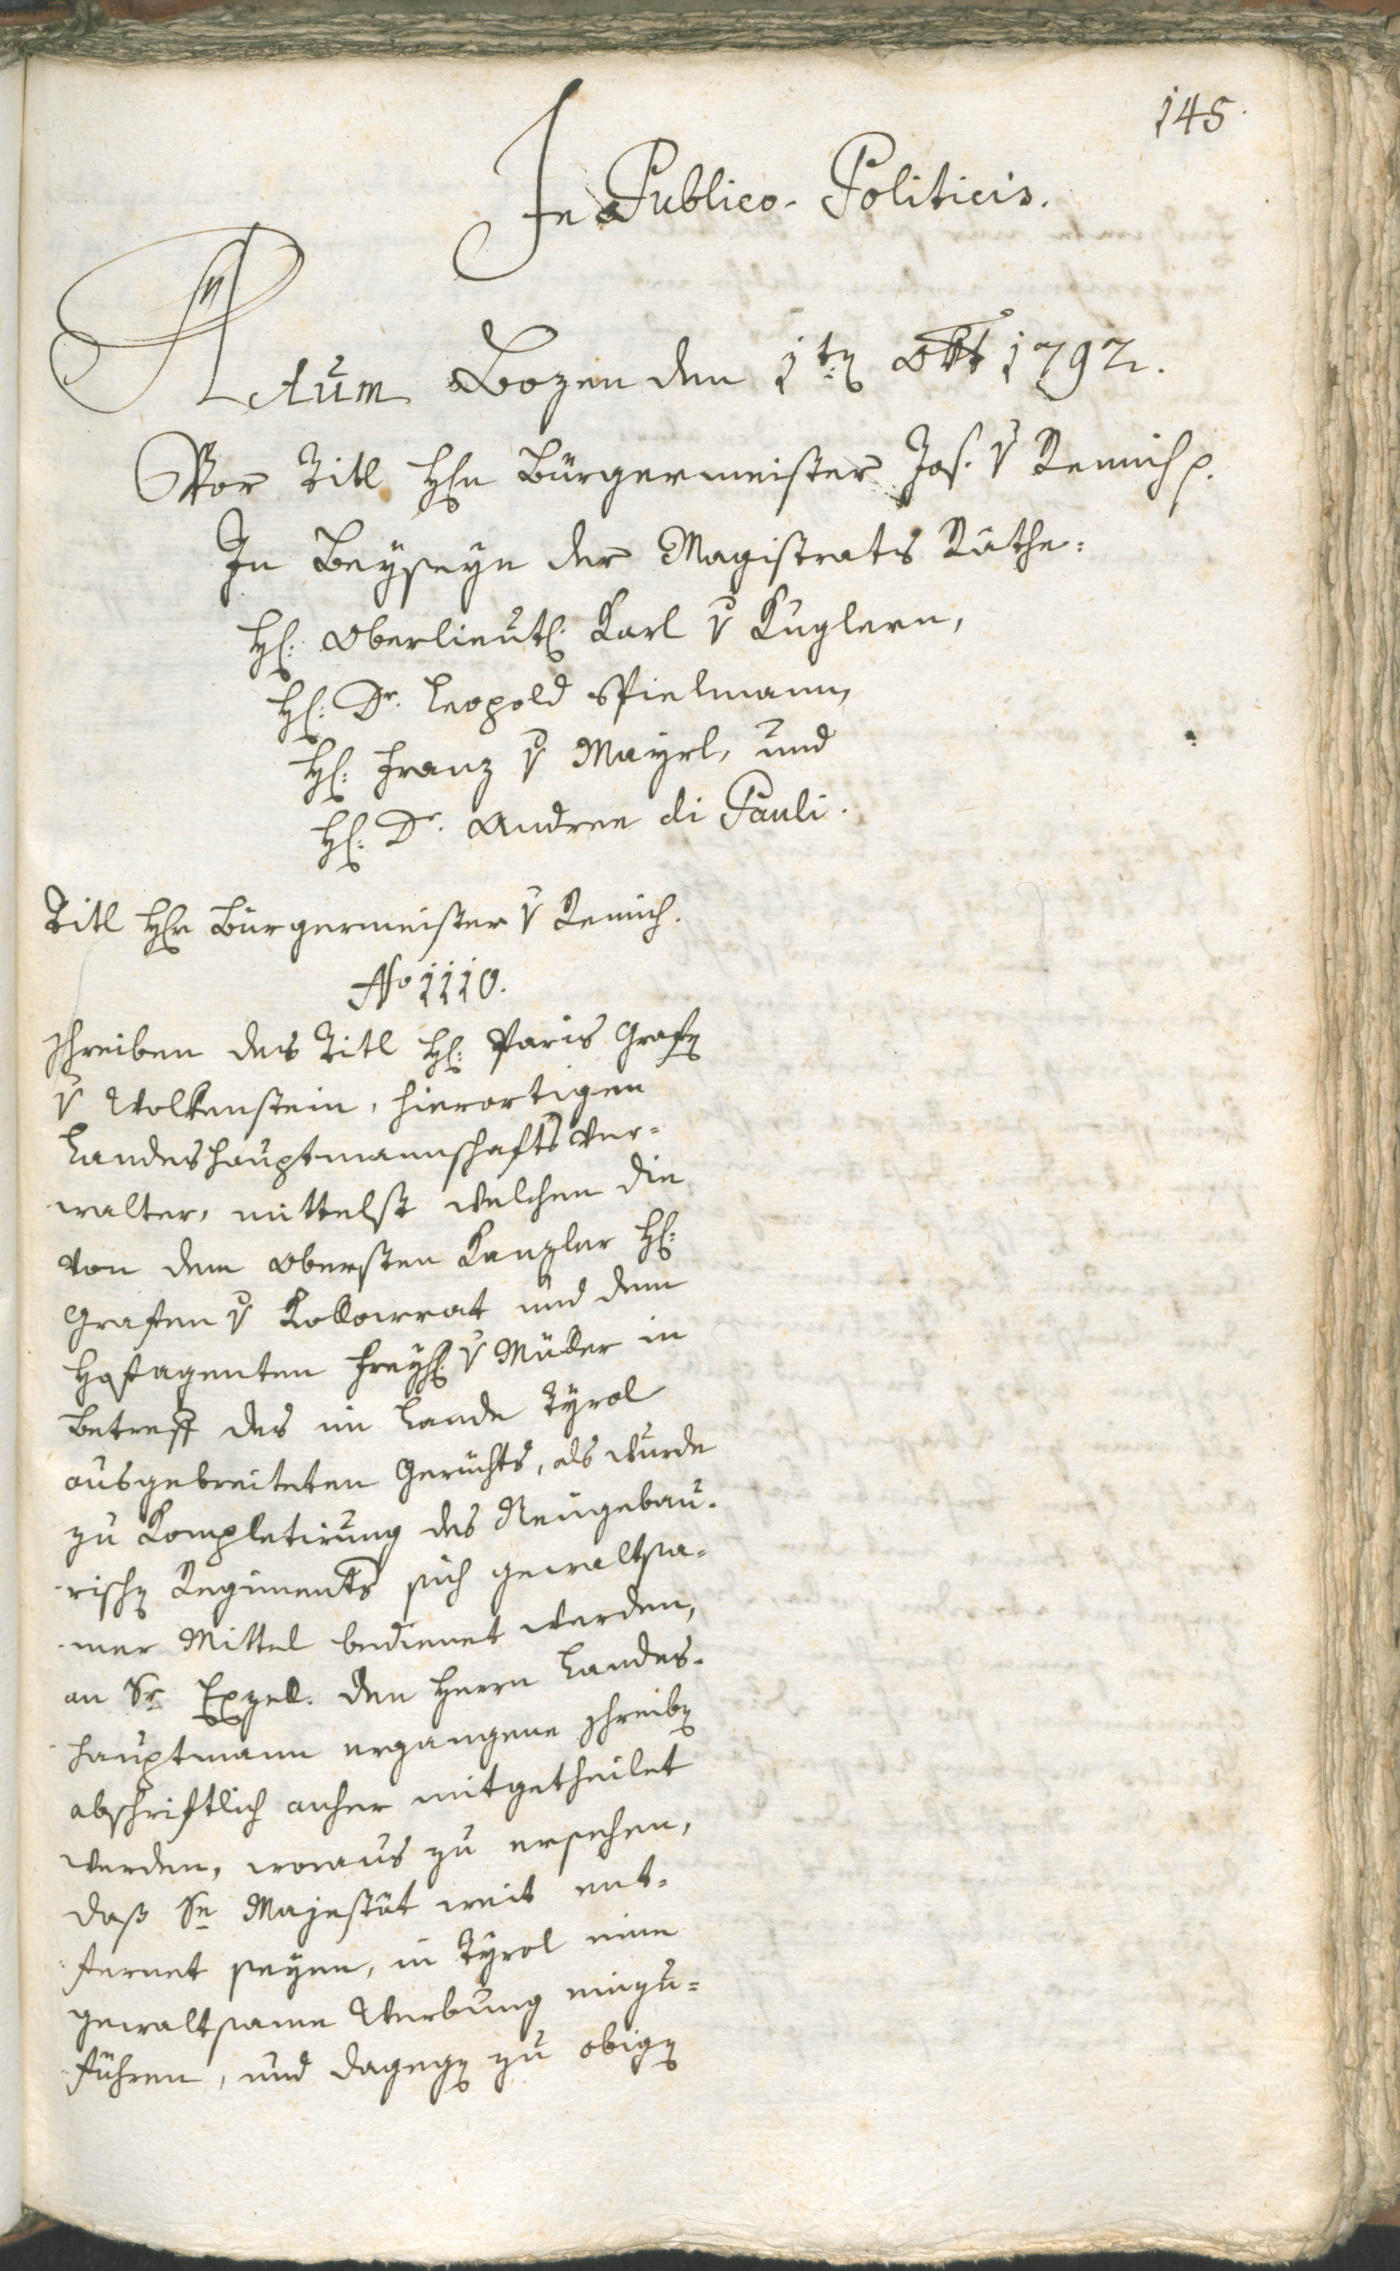 145.
In Publico-Politicis.
Actum Bozen den 1ten Okt 1792.
Vor Titl Hrn Bürgermeister Jos. v Remich p.
In Beyseyn der Magistrats Räthe:
Hr: Oberlieut: Karl v Kuglern,
Hr: Dr. Leopold Spielmann,
Hr: Franz v Mayrl, und
Hr: Dr. Andree di Pauli.
Titl Hr Bürgermeister v Remich.
No 1110.
Schreiben des Titl Hr: Paris Grafen
v Wolkenstein, hierortigen
Landeshauptmannschafts Ver=
walter, mittelst welchen die
von dem obersten Kanzler Hr:
Grafen v Kollowrat und dem
Hofagenten Freyh: v Müller in
Betreff des im Lande Tyrol
ausgebreiteten Gerüchts, als wurde
zu Kompletirung des Neugebau=
rischen Regiments sich gewaltsa=
mer Mittel bedienet werden,
an Sr Exzell. den Herrn Landes=
hauptmann ergangene Schreiben
abschriftlich anher mitgetheilet
werden, woraus zu ersehen,
daß Se Majestät weit ent=
fernet seyen, in Tyrol eine
gewaltsame Werbung einzu=
führen, und dagegen zu obigen